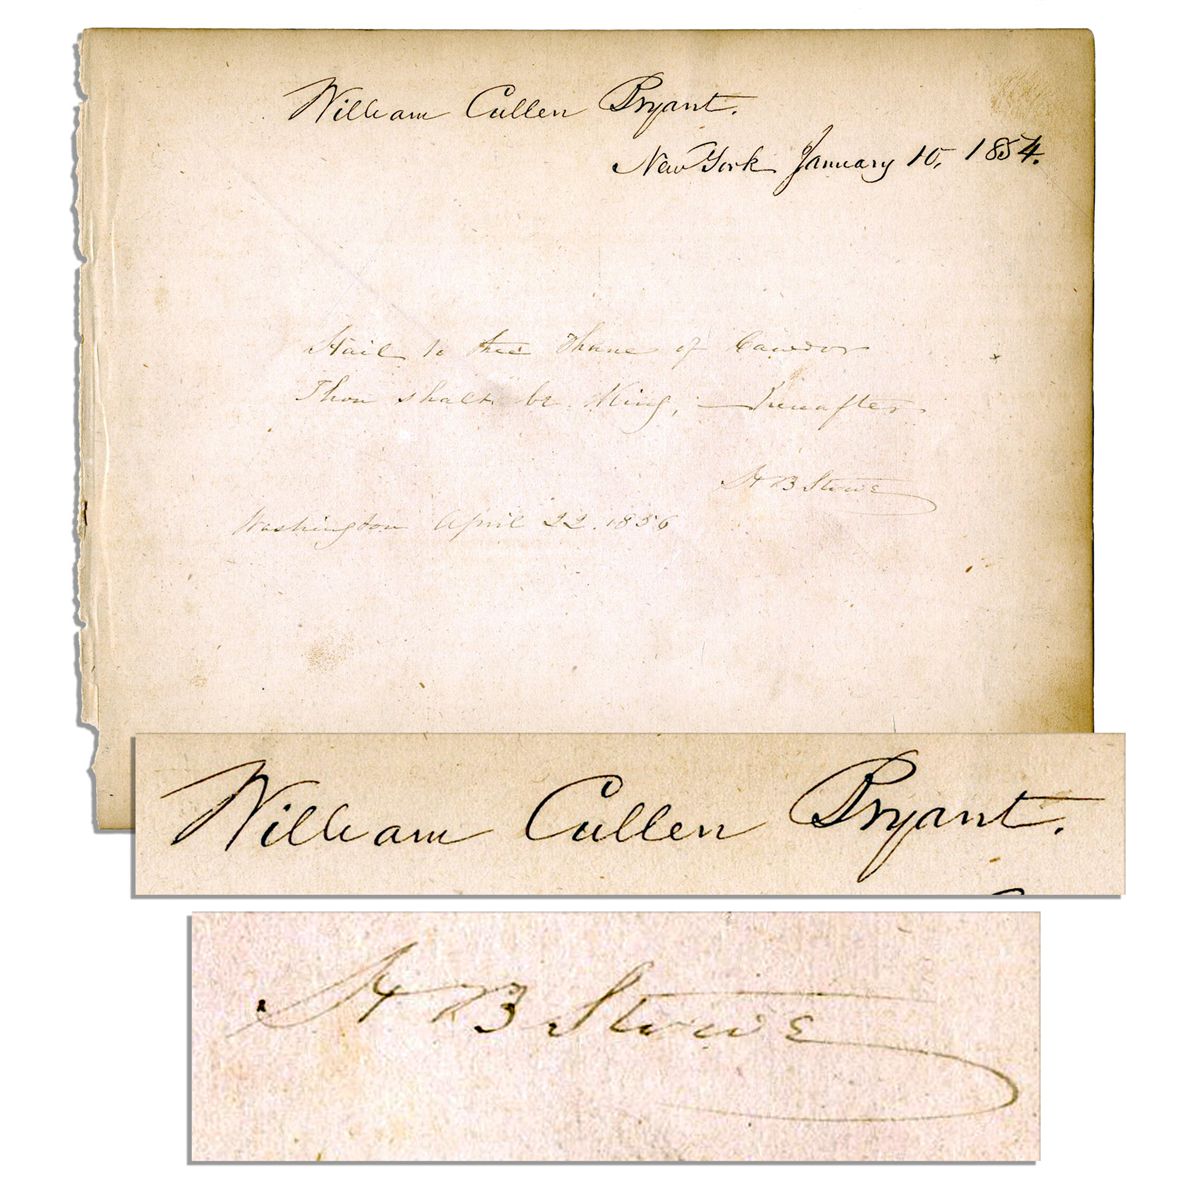 William Cullen Bryant.
New York January 10, 1854.
Hail to thee Thane of Cawdor
Thou shalt be King, — hereafter
H B Stowe
Washington April 22. 1856
William Cullen Bryant.
H B Stowe